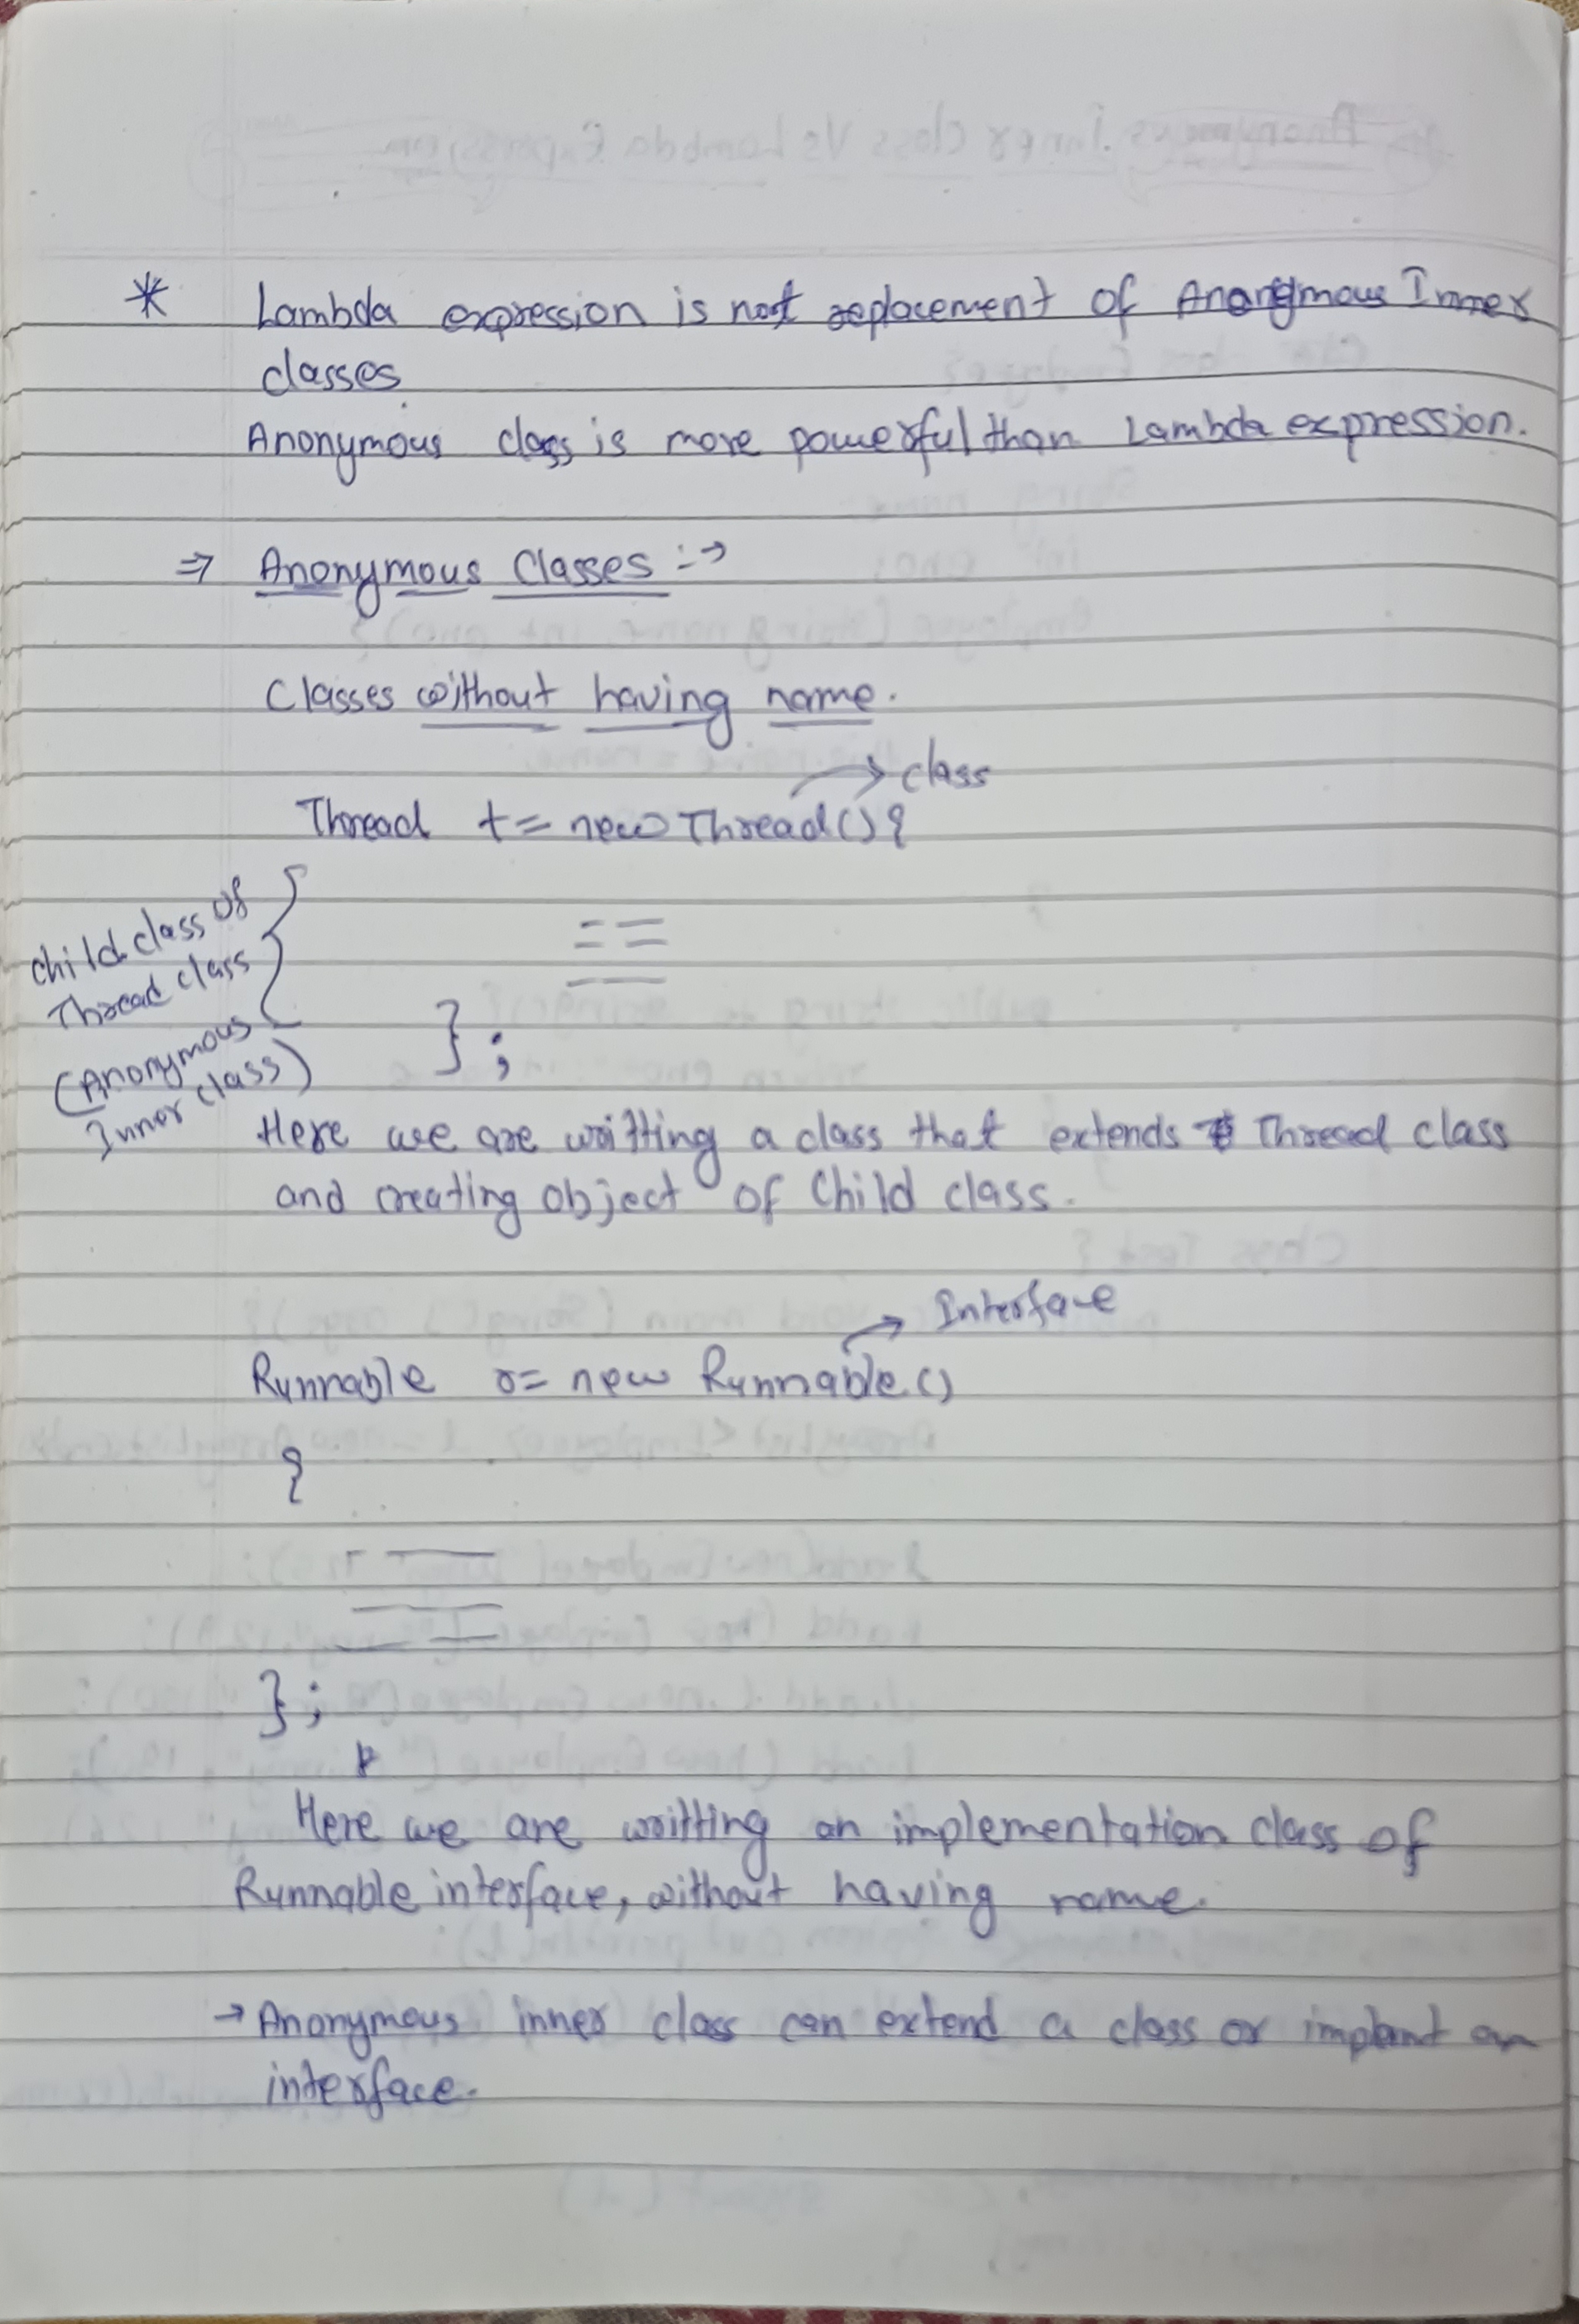 * Lambda expression is not replacement of Anonymous Inner
classes
Anonymous class is more powerful than Lambda expression.
⇒ Anonymous Classes :→
Classes without having name.
→ class
Thread t = new Thread() {
child class of
Thread class
(Anonymous
Inner class)
} ;
Here we are writting a class that extends Thread class
and creating object of Child class.
→ Interface
Runnable r = new Runnable()
{
} ;
Here we are writting an implementation class of
Runnable interface, without having name.
→ Anonymous inner class can extend a class or implant an
interface.